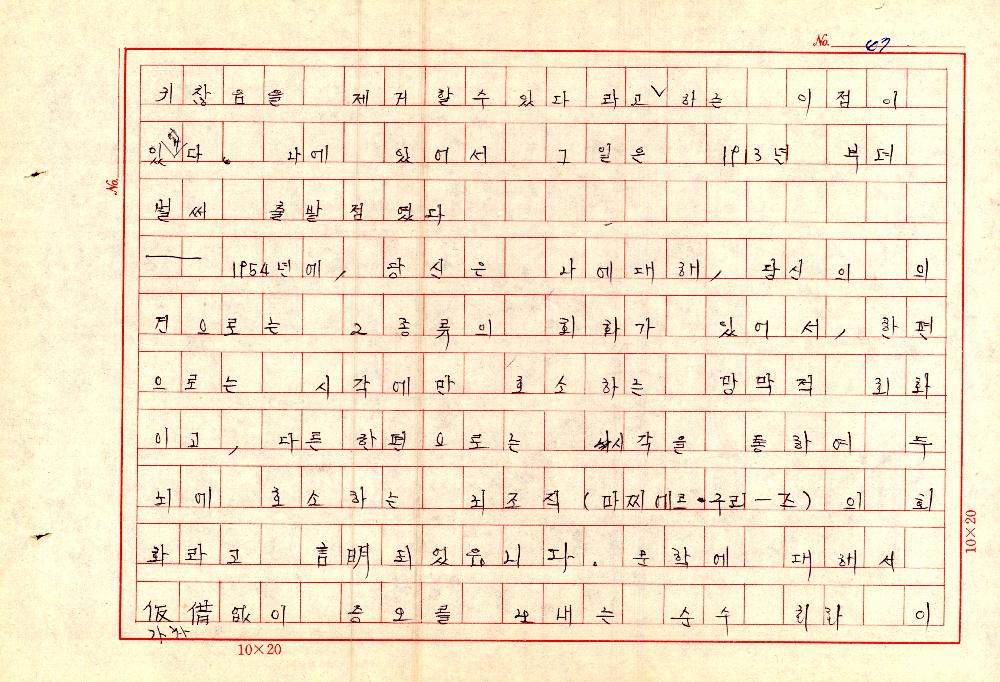 No. 47
키찮음을 제거할수 있다 라고 하는 이점이
있다. 나에 있어서 그 일은 1913년 부터
벌써 출발점 였다
── 1954년에, 당신은 나에대해, 당신의 의
견으로는 2종류의 회화가 있어서, 한편
으로는 시각에만 호소하는 망막적 회화
이고, 다른한편으로는 시각을 통하여 두
뇌에 호소하는 뇌조직(마찌에르·구리ー즈)의 회
화라고 言明되있읍니다. 문학에 대해서
仮借없이 증오를 보내는 순수 회화 이
가차
No.
10×20
10×20